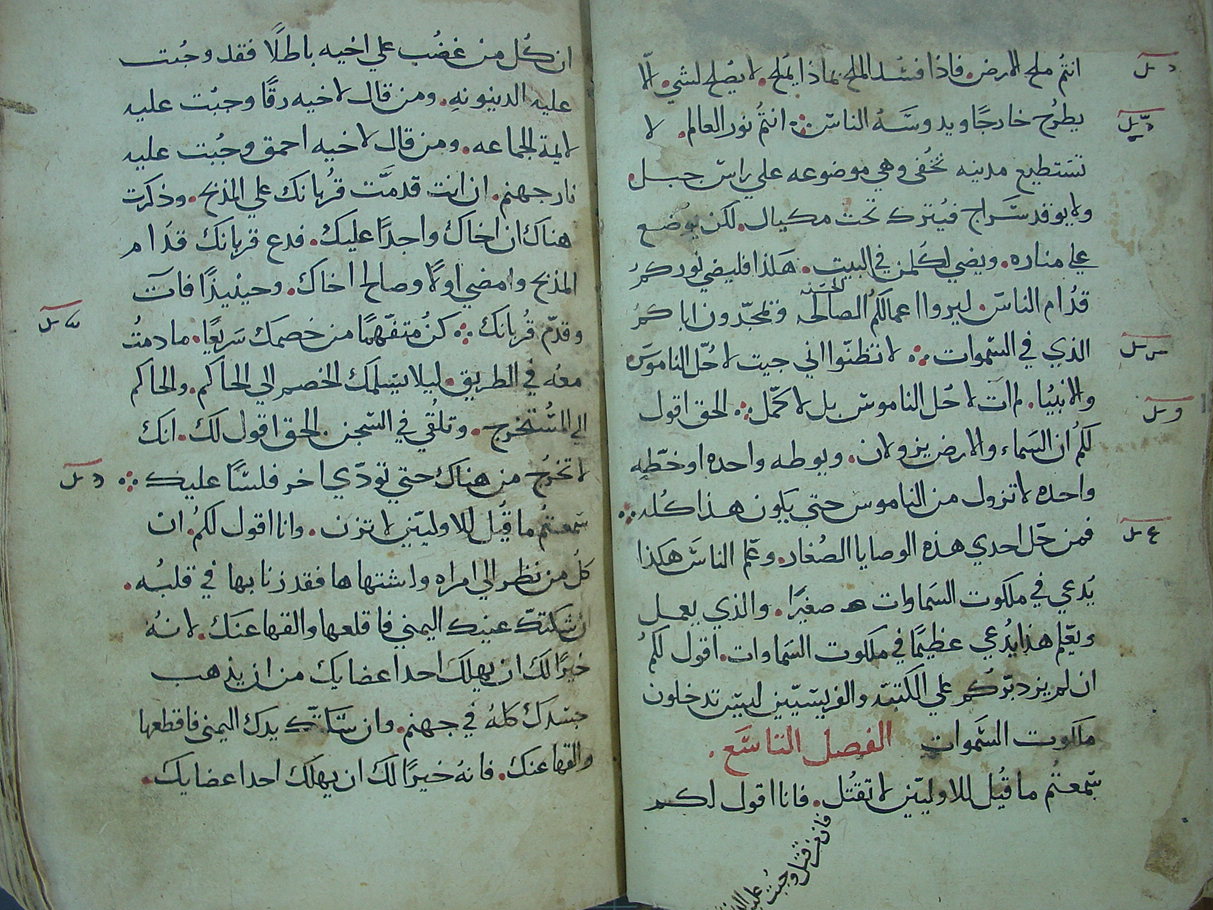 انتم ملح الارض. فاذا فسد الملح بماذا يملح. لا يصلح لشي. الا
يطرح خارجًا ويدوسَه الناس ❖ انتم نور العالم. لا
تستطيع مدينه تخفى وهي موضوعه علي راس جبل.
ولا يوقد سراج فيترك تحت مكيال. لكن يوضع
علي مناره. ويضي لكلمن في البيت. هكذا فليضي نوركم
قدام الناس. ليروا اعمالكم الصالحه الحسنه ويمجدون اباكم
الذي في السموات ❖ لا تظنوا اني جيت لاحل الناموس
والانبيا. لم آت لاحل الناموس بل لاكمل ❖ الحق اقول
لكم ان السماء والارض يزولان. ويوطه واحده او خطيه
واحده لا تزول من الناموس حتي يكون هذا كله ❖
فمن حل احدي هذه الوصايا الصغار. وعلم الناس هكذا
يدعي في ملكوت السماوات صغيرًا. والذي يعمل
ويعلم هذا يدعي عظيمًا في ملكوت السماوات. اقول لكم
ان لم يزد بركم علي الكتبه والفريسيين ليس تدخلون
ملكوت السموات الفصل التاسع.
سمعتم ما قيل للاوليين لا تقتل. فانا اقول لكم
فان من قتل وجبت عليه
ان كل من غضب علي اخيه باطلًا فقد وجبت
عليه الدينونه. ومن قال لاخيه رقًا وجبت عليه
لايمة الجماعه. ومن قال لاخيه احمق وجبت عليه
نار جهنم. ان انت قدمت قربانك علي المذبح. وذكرت
هناك ان اخاك واجدًا عليك. فدع قربانك قدام
المذبح وامضي اولًا وصالح اخاك. وحينيذًا فات
وقدم قربانك ❖ كن متفهمًا من خصمك سريعًا. ما دمت
معه في الطريق. ليلا يسلمك الخصم الي الحاكم. والحاكم
الي المستخرج. وتلقي في السجن. الحق اقول لك. انك
لا تخرج من هناك حتي تودي اخر فلسًا عليك ❖
سمعتم ما قيل للاوليين لا تزن. وانا اقول لكم. ان
كل من نظر الي امراه واشتهاها فقد زنا بها في قلبه.
ان شكتك عينك اليمني فاقلعها والقها عنك. لانه
خيرًا لك ان يهلك احد اعضايك من ان يذهب
جسدك كله في جهنم. وان شكتك يدك اليمني فاقطعها
والقها عنك. فانه خيرًا لك ان يهلك احد اعضايك.